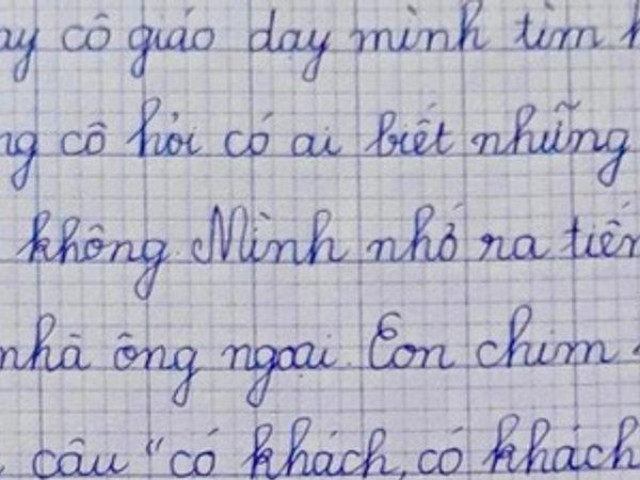 ay cô giáo dạy mình tìm h
ng cô hỏi có ai biết những
không. Mình nhớ ra tiến
nhà ông ngoại. Con chim
câu "có khách, có khách